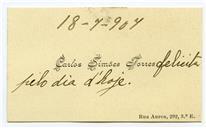 18-7-907
Carlos Simões Torres felicita
pelo dia d'hoje.
Rua Aurea, 292, 3.º E.